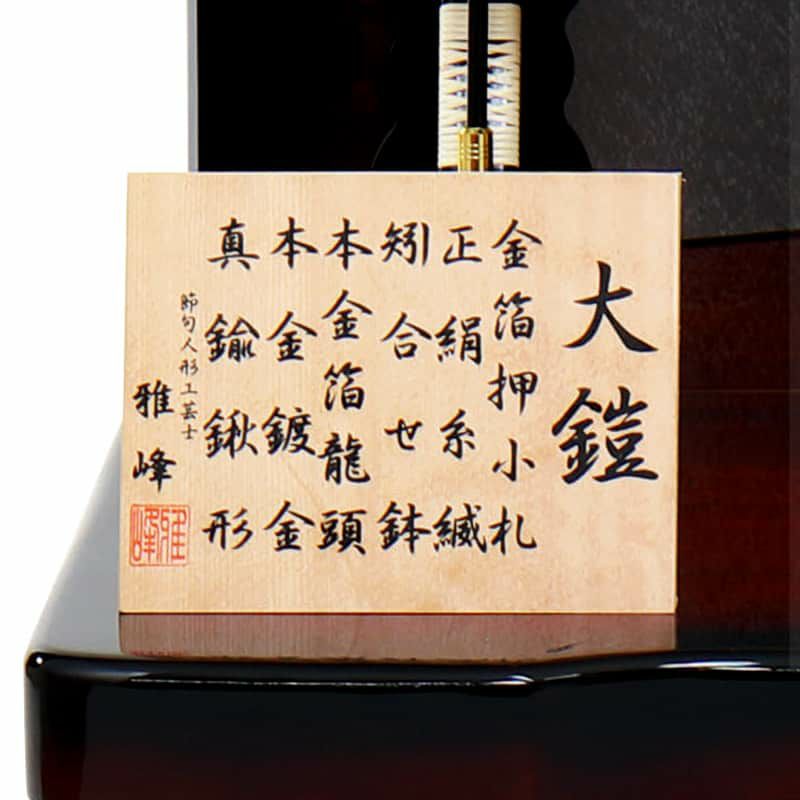 大鎧
金箔押小札
正絹糸縅
矧合せ鉢
本金箔龍頭
本金鍍金
真鍮鍬形
節句人形工芸士
雅峰
雅峰